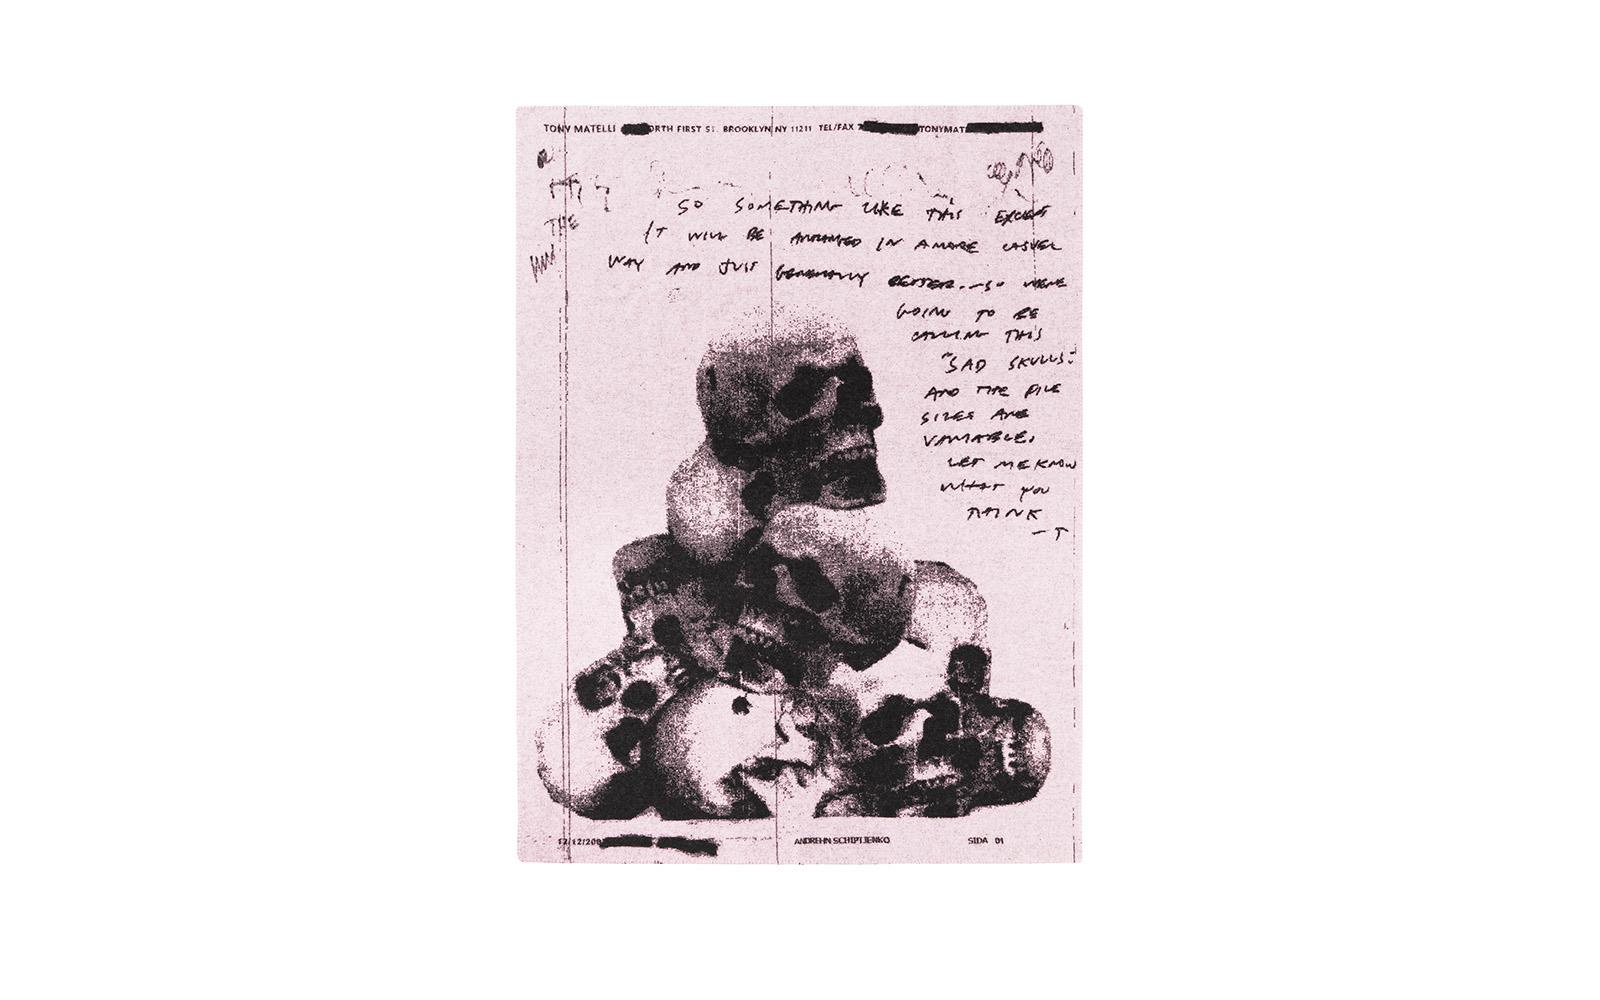 TONY MATELLI ORTH FIRST ST. BROOKLYN NY 11211 TEL/FAX 7 TONYMAT
THE
SO SOMETHING LIKE THIS EXCEPT
IT WILL BE ARRANGED IN A MORE CASUEL
WAY AND JUST GENERALLY BETTER. - SO WERE
GOING TO BE
CALLING THIS
"SAD SKULLS."
AND THE PILE
SIZES ARE
VARIABLE.
LET ME KNOW
WHAT YOU
THINK
- T
12/12/200 ANDREHN SCHIPTJENKO SIDA 01